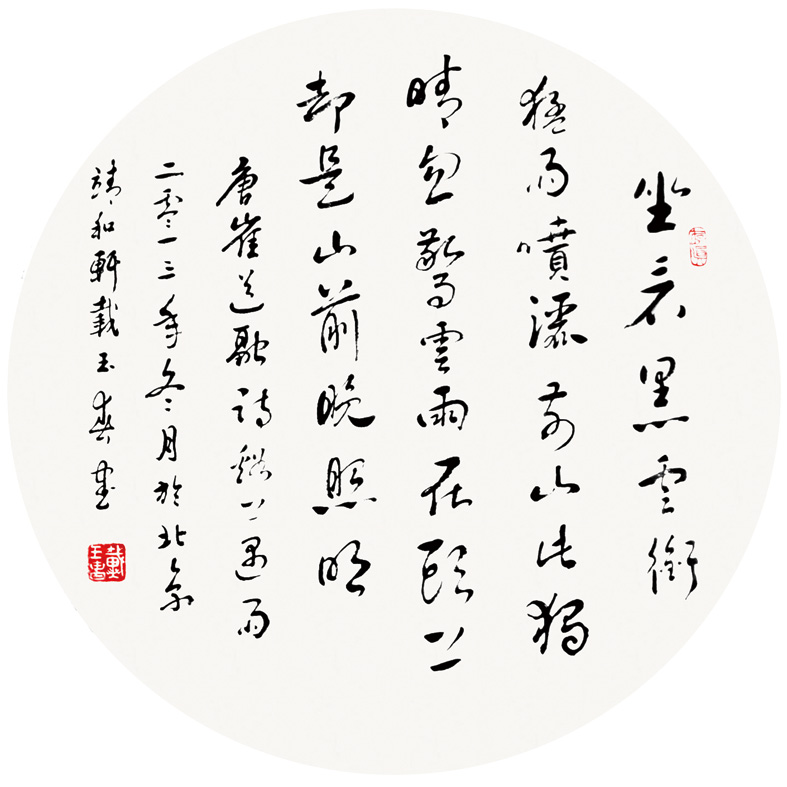 坐看黑雲銜
猛雨噴灑前山此獨
晴忽驚雲雨在頭上
却是山前晚照明
唐崔道融詩谿上遇雨
二零一三年冬月於北京
靖和軒戴玉書書
戴玉書